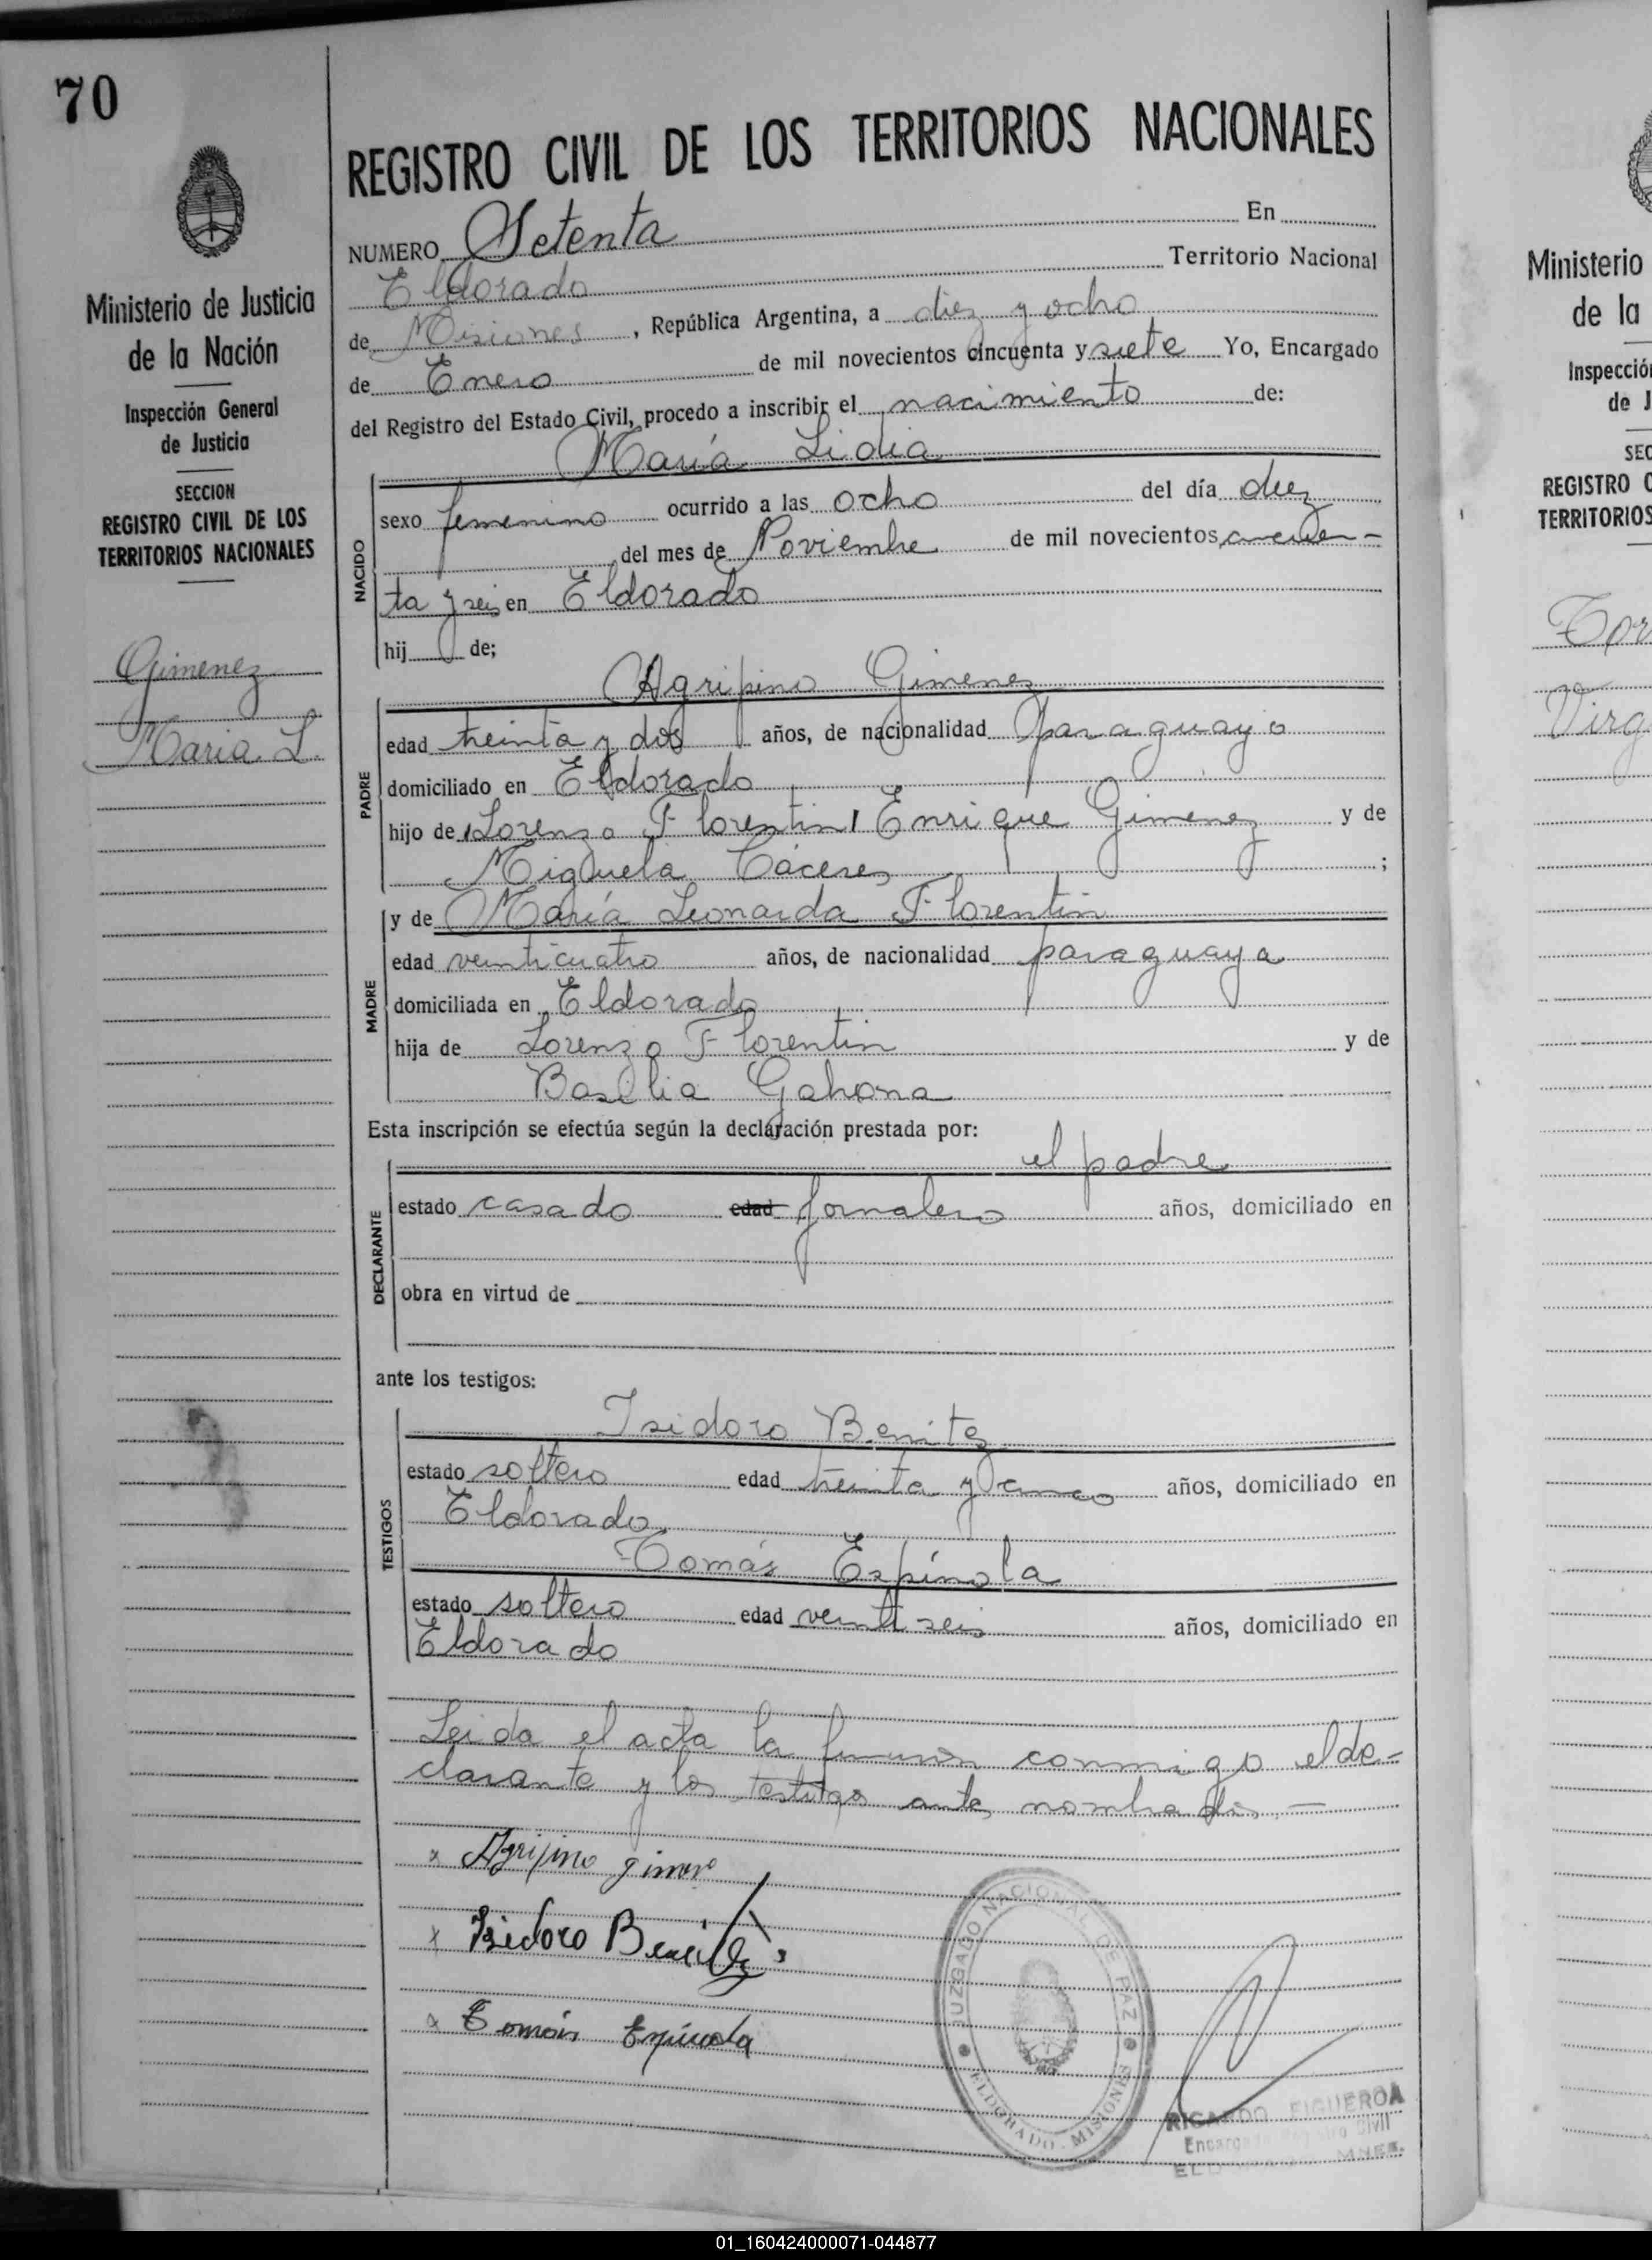 70
Ministerio de Justicia
de la Nación
Inspección General
de Justicia
SECCION
REGISTRO CIVIL DE LOS
TERRITORIOS NACIONALES
Gimenez
Maria L.
REGISTRO CIVIL DE LOS TERRITORIOS NACIONALES
NUMERO Setenta En
Eldorado Territorio Nacional
de Misiones, República Argentina, a diez y ocho
de Enero de mil novecientos cincuenta y siete Yo, Encargado
del Registro del Estado Civil, procedo a inscribir el nacimiento de:
María Lidia
NACIDO
sexo femenino ocurrido a las ocho del día diez
del mes de Noviembre de mil novecientos cincuen-
ta y seis en Eldorado
hij de;
Agripino Gimenez
PADRE
edad treinta y dos años, de nacionalidad paraguayo
domiciliado en Eldorado
hijo de (Lorenzo Florentin) Enrique Gimenez y de
Miguela Cáceres ;
MADRE
y de María Leonarda Florentin
edad veinticuatro años, de nacionalidad paraguaya
domiciliada en Eldorado
hija de Lorenzo Florentin y de
Basilia Gahona
Esta inscripción se efectúa según la declaración prestada por:
el padre
DECLARANTE
estado casado edad jornalero años, domiciliado en
obra en virtud de
ante los testigos:
TESTIGOS
Isidoro Benitez
estado soltero edad treinta y cinco años, domiciliado en
Eldorado
Tomás Espínola
estado soltero edad veinti seis años, domiciliado en
Eldorado
Leida el acta la firman conmigo el de-
clarante y los testigos antes nombrados.-
x Agripino Gimene
x Isidoro Benitez
x Tomás Espínola
JUZGADO NACIONAL DE PAZ
ELDORADO - MISIONES
RICARDO FIGUEROA
Encargado Registro Civil
Ministerio
de la
Inspección
de J
SEC
REGISTRO C
TERRITORIOS
Tor
Virg
01_160424000071-044877